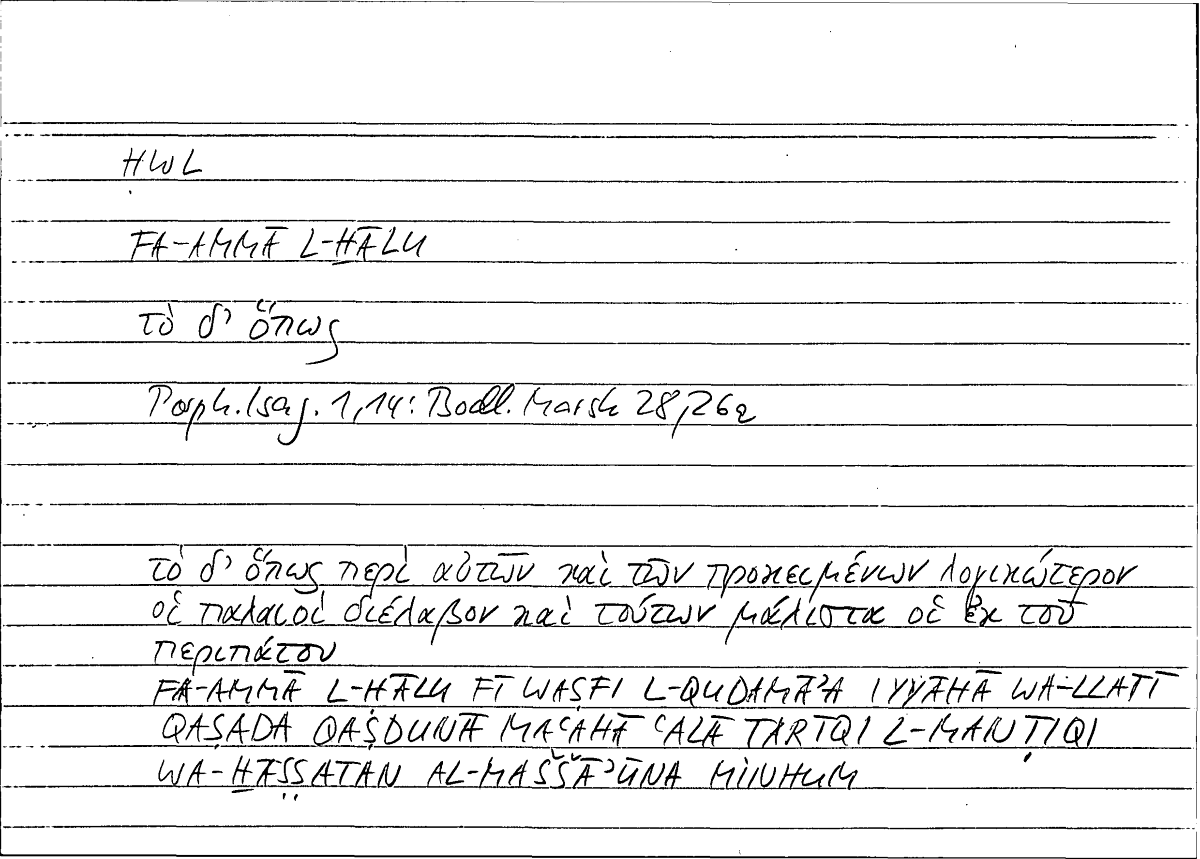 ḤWL
FA-AMMĀ L-H̱ĀLU
τὸ δ' ὅπως
Porph. Isag. 1,14: Bodl. Marsh 28,26a
τὸ δ' ὅπως περὶ αὐτῶν καὶ τῶν προκειμένων λογικώτερον
οἱ παλαιοὶ διέλαβον καὶ τούτων μάλιστα οἱ ἐκ τοῦ
περιπάτου
FA-AMMĀ L-HĀLU FĪ WAṢFI L-QUDAMĀʾA IYYĀHĀ WA-LLATĪ
QAṢADA QAṢDUNĀ MAʿAHĀ ʿALĀ TARĪQI L-MANṬIQI
WA-H̱ĀṢṢATAN AL-MAŠŠĀʾŪNA MINHUM